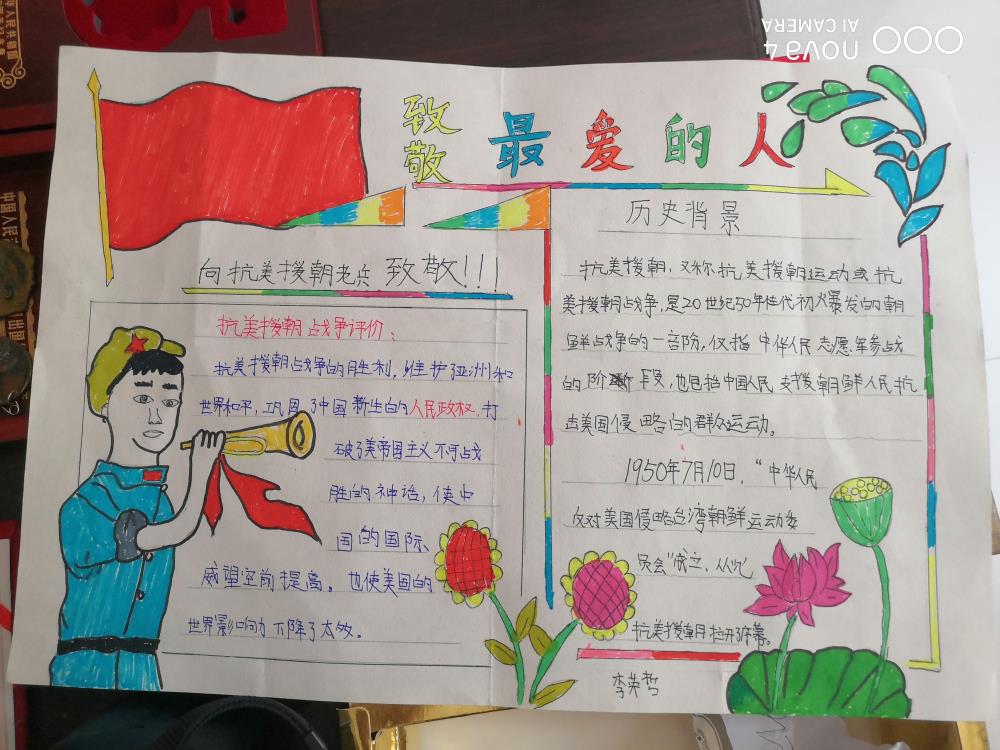 致敬 最爱的人
向抗美援朝老兵 致敬!!!
抗美援朝战争评价:
抗美援朝战争的胜利,维护亚洲和
世界和平,巩固了中国新生的人民政权.打
破了美帝国主义不可战
胜的神话,使中
国的国际、
威望空前提高。也使美国的
世界影响力下降了太多。
历史背景
抗美援朝,又称抗美援朝运动或抗
美援朝战争,是20世纪50年代初爆发的朝
鲜战争的一部份,仅指中华人民志愿军参战
的阶段,也包括中国人民支援朝鲜人民抗
击美国侵略的群众运动。
1950年7月10日,“中华人民
反对美国侵略台湾朝鲜运动委
员会”成立、从此
抗美援朝拉开序幕。
李英哲
nova 4
AI CAMERA